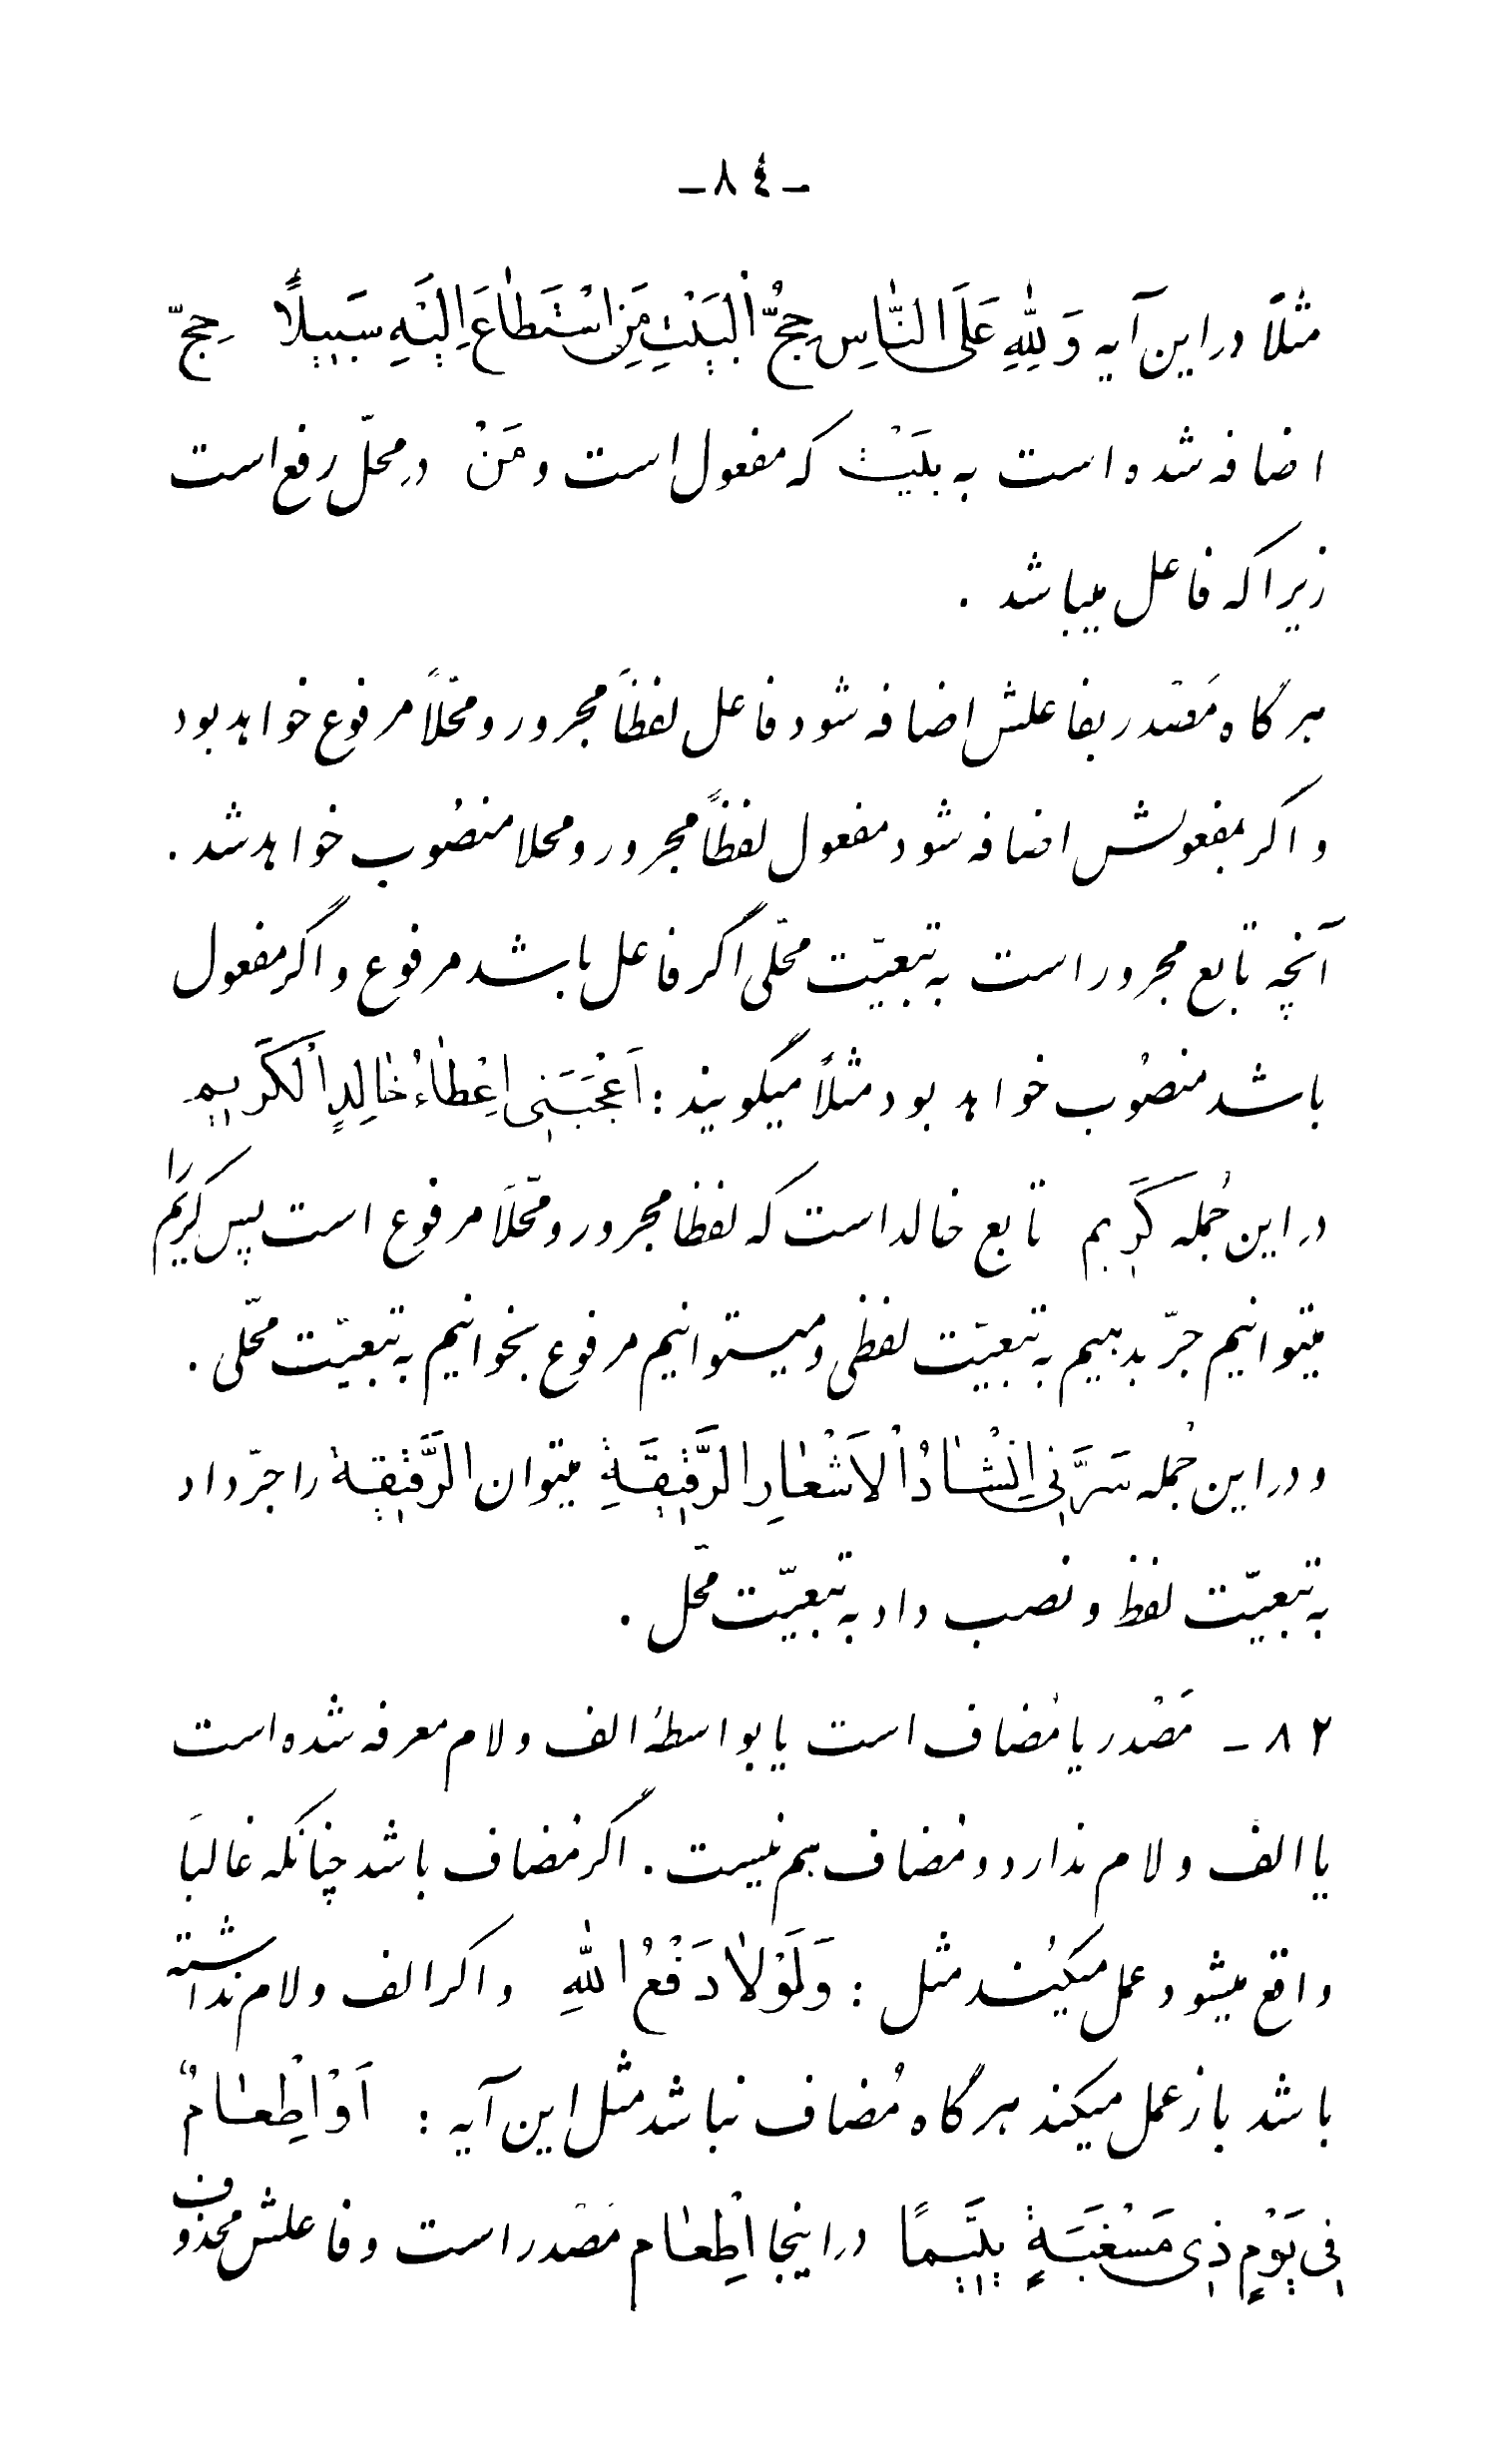 -٨٤-
مثلاً در این آیه وَ لِلّٰهِ عَلَی النّٰاسِ حِجُّ الْبَیْتِ مَنِ اسْتَطٰاعَ اِلَیْهِ سَبیٖلاً حِجّ
اضافه شده است به بَیْت که مفعول است و مَنْ در محلّ رفع است
زیرا که فاعل میباشد .
هر گاه مَصْدر بفاعلش اضافه شود فاعل لفظاً مجرور و محّلاً مرفوع خواهد بود
و اگر بمفعولش اضافه شود مفعول لفظاً مجرور و محلا منصُوب خواهد شد .
آنچه تابع مجرور است به تبعیّت محلّی اگر فاعل باشد مرفوع و اگر مفعول
باشد منصُوب خواهد بود مثلاً میگویند : اَعْجَبَنیٖ اِعْطٰاءُ خٰالِدٍ اْلکَریٖمِ
در این جُمله کَریٖم تابع خالد است که لفظا مجرور و محّلاً مرفوع است پس کریَم را
میتوانیم جرّ بدهیم به تبعیّت لفظی و میتوانیم مرفوع بخوانیم به تبعیّت محّلی .
و در این جُمله سَرَّنیٖ اِنْشٰادُ اْلاَشْعٰارِ الرَّقیٖقَةِ میتوان الرَّقیٖقة را جرّ داد
به تبعیّت لفظ و نصب داد به تبعیّت محّل .
٨٢ - مَصْدر یا مُضاف است یا بواسطهٔ الف و لام معرفه شده است
یا الف و لام ندارد و مُضاف هم نیست . اگر مُضاف باشد چنانکه غالباً
واقع میشود عمل میکُند مثل : وَ لَوْلاٰ دَفْعُ اللّٰهِ و اگر الف و لام نداشته
باشد باز عمل میکند هر گاه مُضاف نباشد مثل این آیه : اَوْ اِطْعٰامٌ
فیٖ یَوْمٍ ذیٖ مَسْغَبَةٍ یَتیٖمًا در اینجا اِطْعٰام مَصْدر است و فاعلش محذوف